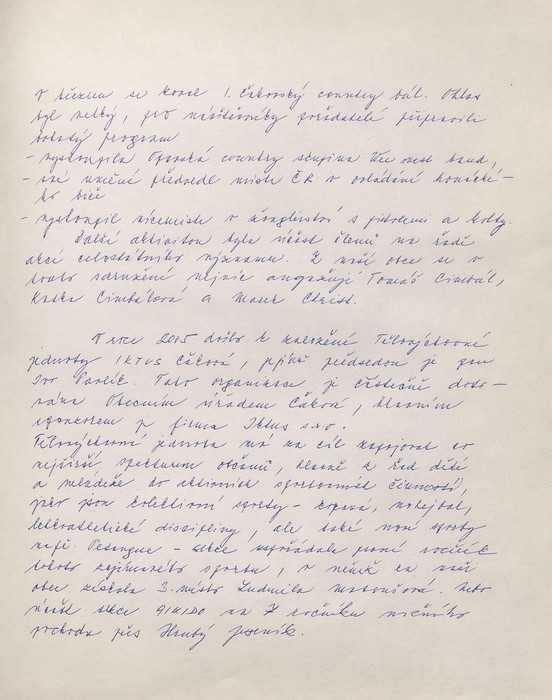 V březnu se konal 1. Čakovský country bál. Ohlas
byl velký, pro návštěvníky pořadatelé připravili
bohatý program
- vystoupila Opavská country skupina West band,
- své umění předvedl mistr ČR v ovládání honácké-
ho biče
- vystoupil vicemistr v žonglérství s pistolemi a kolty.
Další aktivitou byla účast členů na řadě
akcí celostátního významu. Z naší obce se v
tomto sdružení nejvíc angažují Tomáš Cimbál,
Katka Cimbálová a Marek Christ.
V roce 2005 došlo k založení Tělovýchovné
jednoty IKTUS Čaková, jejímž předsedou je pan
Ivo Pavlík. Tato organizace je částečně doto-
vána Obecním úřadem Čaková, hlavním
sponzorem je firma Iktus s.r.o.
Tělovýchovná jednota má za cíl zapojovat co
nejširší spektrum občanů, hlavně z řad dětí
a mládeže do aktivních sportovních činností,
jako jsou kolektivní sporty - kopaná, nohejbal,
lehkoatletické disciplíny, ale také nové sporty
např. Petangue - sekce uspořádala první ročník
tohoto zajímavého sportu, v němž za naši
obec získala 3. místo Ludmila Matoušová. Nebo
sekce AIKIDO na 7 ročníku nočního
pochodu přes Hrubý Jeseník.